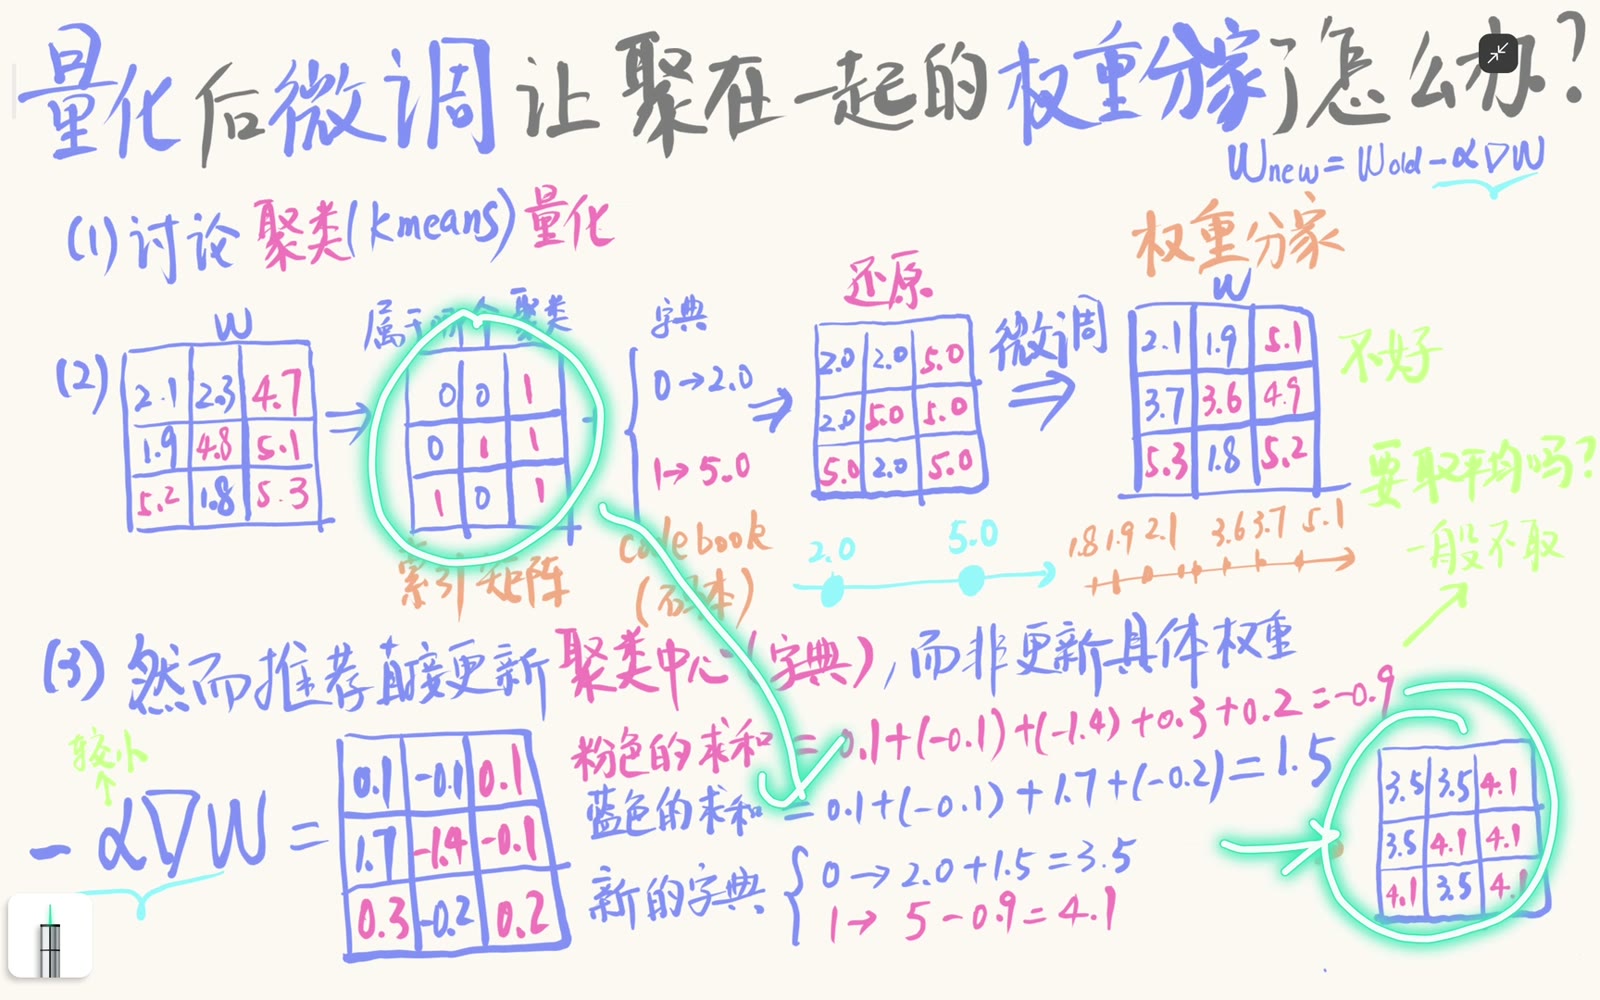 量化后微调让聚在一起的权重分家了怎么办?
Wnew = Wold - α∇W
(1) 讨论聚类(kmeans)量化
权重分家
还原
W
属于哪个聚类
字典
微调
W
(2)
2.1 2.3 4.7
1.9 4.8 5.1
5.2 1.8 5.3
⇒
0 0 1
0 1 1
1 0 1
0→2.0
1→5.0
⇒
2.0 2.0 5.0
2.0 5.0 5.0
5.0 2.0 5.0
⇒
2.1 1.9 5.1
3.7 3.6 4.9
5.3 1.8 5.2
不好
要取平均吗?
一般不取
索引矩阵
codebook
(码本)
2.0 5.0
1.8 1.9 2.1 3.6 3.7 5.1
(3) 然而推荐直接更新聚类中心(字典),而非更新具体权重
较小
- α∇W =
0.1 -0.1 0.1
1.7 -1.4 -0.1
0.3 -0.2 0.2
粉色的求和 = 0.1+(-0.1)+(-1.4)+0.3+0.2=-0.9
蓝色的求和 = 0.1+(-0.1)+1.7+(-0.2)=1.5
新的字典
0→2.0+1.5=3.5
1→5-0.9=4.1
3.5 3.5 4.1
3.5 4.1 4.1
4.1 3.5 4.1